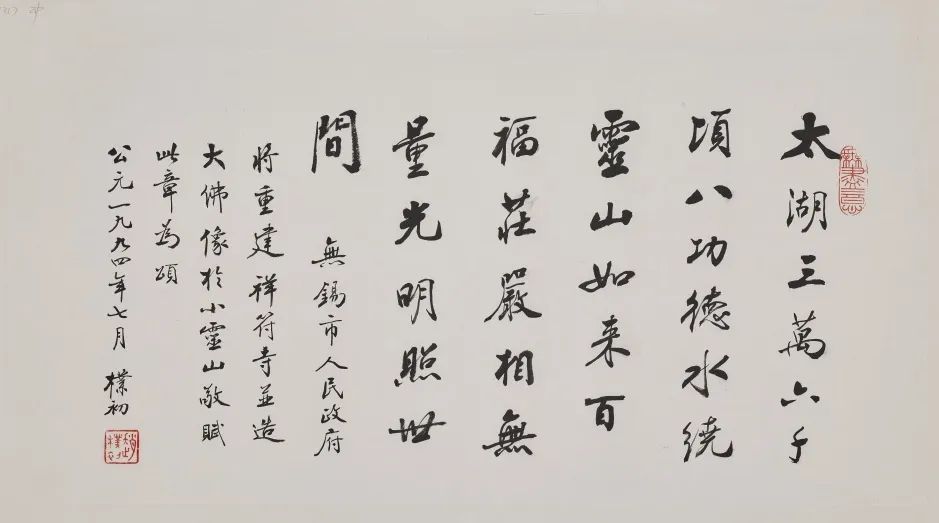 太湖三萬六千
頃八功德水繞
靈山如来百
福莊嚴相無
量光明照世
間
無錫市人民政府
將重建祥符寺並造
大佛像於小靈山敬賦
此章為頌
公元一九九四年七月 樸初
趙樸初